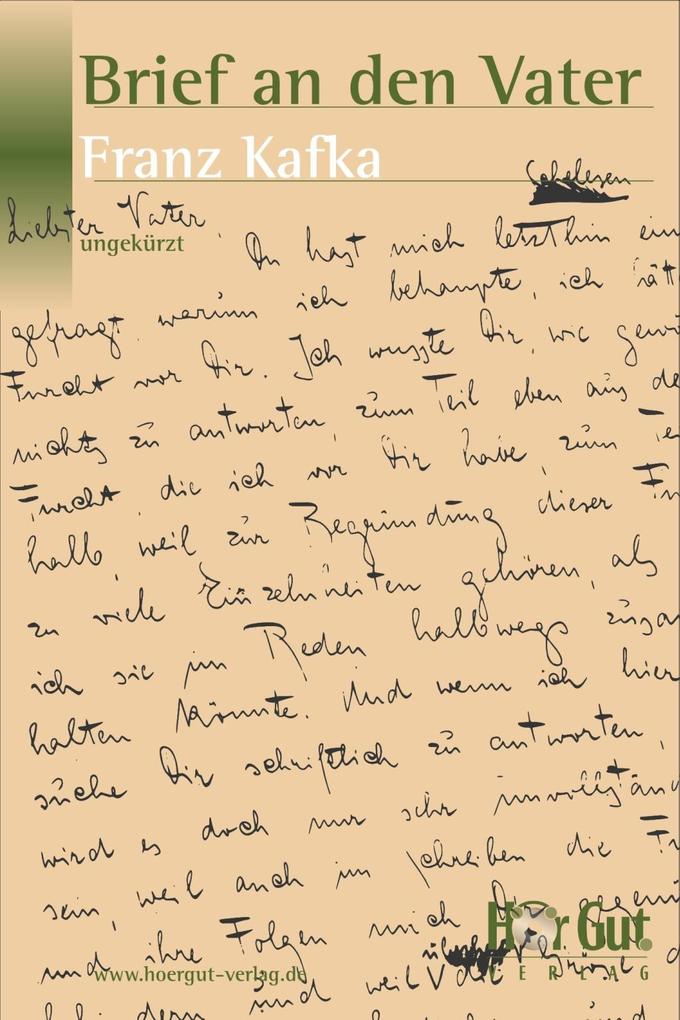 Brief an den Vater
Franz Kafka
Schelesen
Liebster Vater,
ungekürzt
Du hast mich letzthin ein
gefragt, warum ich behaupte, ich hätt
Furcht vor Dir. Ich wusste Dir, wie gewö
nichts zu antworten, zum Teil eben aus de
Furcht, die ich vor Dir habe, zum Tei
halb, weil zur Begründung dieser Fu
zu viele Einzelnheiten gehören, als
ich sie im Reden halbwegs zusa
halten könnte. Und wenn ich hier
suche Dir schriftlich zu antworten,
wird es doch nur sehr unvollständ
sein, weil auch im Schreiben die Fu
und ihre Folgen mich Dir gegenü
und weil die Grösse d
Hör Gut
VERLAG
www.hoergut-verlag.de